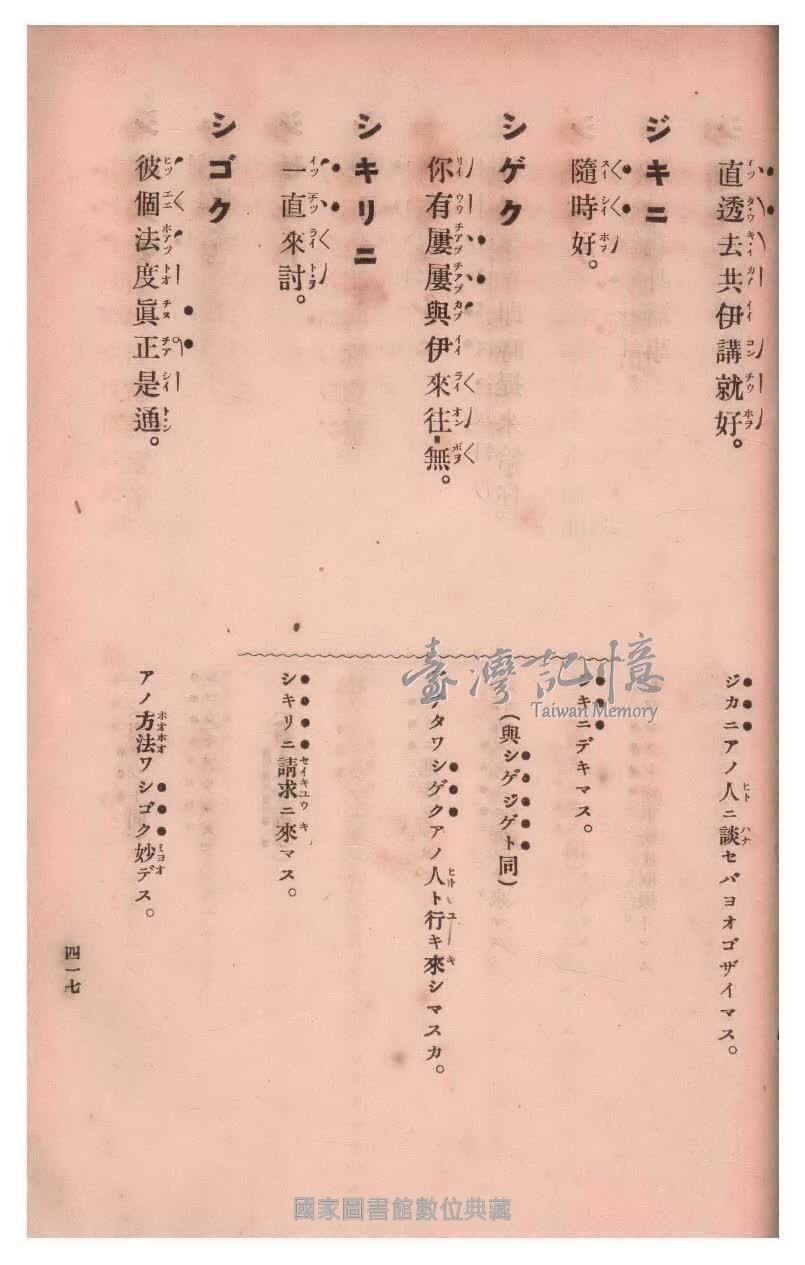 直透去共伊講就好。
ジカニアノ人ニ談セバヨオゴザイマス。
ジキニ
隨時好。
キニデキマス。
シゲク
(與シゲシゲト同)
你有屢屢與伊來往無。
タワシゲクアノ人ト行キ來シマスカ。
シキリニ
一直來討。
シキリニ請求ニ來マス。
シゴク
彼個法度眞正是通。
アノ方法ワシゴク妙デス。
四一七
臺灣記憶
Taiwan Memory
國家圖書館數位典藏